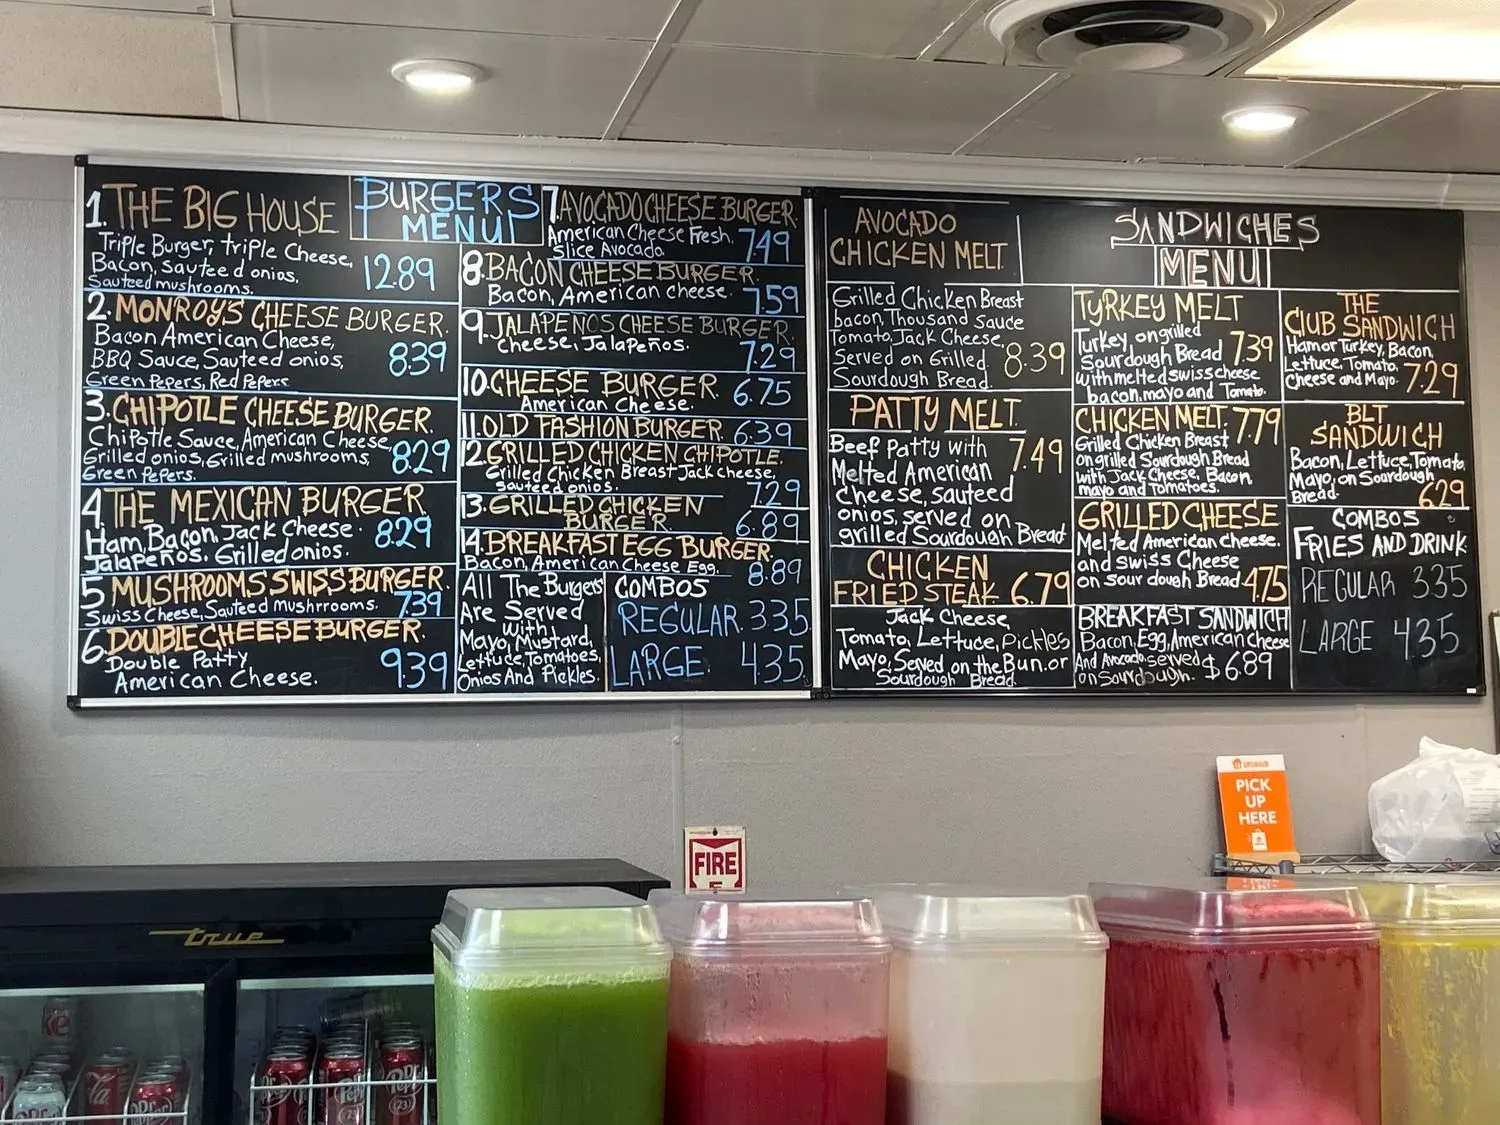 BURGERS
MENU
1. THE BIG HOUSE
Triple Burger, triple Cheese,
Bacon, Sauteed onios,
Sauteed mushrooms. 12.89
2. MONROY'S CHEESE BURGER.
Bacon American Cheese,
BBQ Sauce, Sauteed onios,
Green Pepers, Red Pepers 8.39
3. CHIPOTLE CHEESE BURGER.
Chipotle Sauce, American Cheese,
Grilled onios, Grilled mushrooms,
Green Pepers. 8.29
4 THE MEXICAN BURGER
Ham, Bacon, Jack Cheese.
Jalapeños. Grilled onios. 8.29
5 MUSHROOMS SWISS BURGER.
Swiss Cheese, Sauteed mushrrooms. 7.39
6. DOUBLE CHEESE BURGER.
Double Patty
American Cheese. 9.39
7. AVOCADO CHEESE BURGER.
American Cheese Fresh,
Slice Avocado. 7.49
8. BACON CHEESE BURGER.
Bacon, American cheese. 7.59
9. JALAPEÑOS CHEESE BURGER.
Cheese, Jalapeños. 7.29
10. CHEESE BURGER. 6.75
American Cheese.
11. OLD FASHION BURGER. 6.39
12. GRILLED CHICKEN CHIPOTLE.
Grilled Chicken Breast Jack cheese,
Sauteed onios. 7.29
13. GRILLED CHICKEN
BURGER. 6.89
14. BREAKFAST EGG BURGER.
Bacon, American Cheese Egg. 8.89
All The Burgers
Are Served
With,
Mayo, Mustard,
Lettuce, Tomatoes,
Onios And Pickles.
COMBOS
REGULAR. 3.35
LARGE. 4.35
SANDWICHES
MENU
AVOCADO
CHICKEN MELT
Grilled Chicken Breast
bacon, Thousand Sauce
Tomato, Jack Cheese,
Served on Grilled
Sourdough Bread. 8.39
PATTY MELT.
Beef Patty with 7.49
Melted American
Cheese, sauteed
onios, served on
grilled Sourdough Bread
CHICKEN
FRIED STEAK 6.79
Jack Cheese,
Tomato, Lettuce, Pickles
Mayo, Served on the Bun.or
Sourdough Bread.
TYRKEY MELT
Turkey, on grilled
Sourdough Bread 7.39
with melted swiss cheese
bacon, mayo and Tomato.
CHICKEN MELT. 7.79
Grilled Chicken Breast
on grilled Sourdough Bread
with Jack Cheese, Bacon
mayo and Tomatoes.
GRILLED CHEESE
Melted American cheese.
and swiss Cheese
on sour dough Bread 4.75
BREAKFAST SANDWICH
Bacon, Egg, American Cheese
And Avocado. served
on Sourdough. $6.89
THE
CLUB SANDWICH
Ham or Turkey, Bacon,
Lettuce, Tomato,
Cheese and Mayo. 7.29
BLT
SANDWICH
Bacon, Lettuce, Tomato,
Mayo, on Sourdough
Bread. 6.29
COMBOS
FRIES AND DRINK
REGULAR 3.35
LARGE 4.35
GRUBHUB
PICK
UP
HERE
FIRE
true
Dr Pepper
23